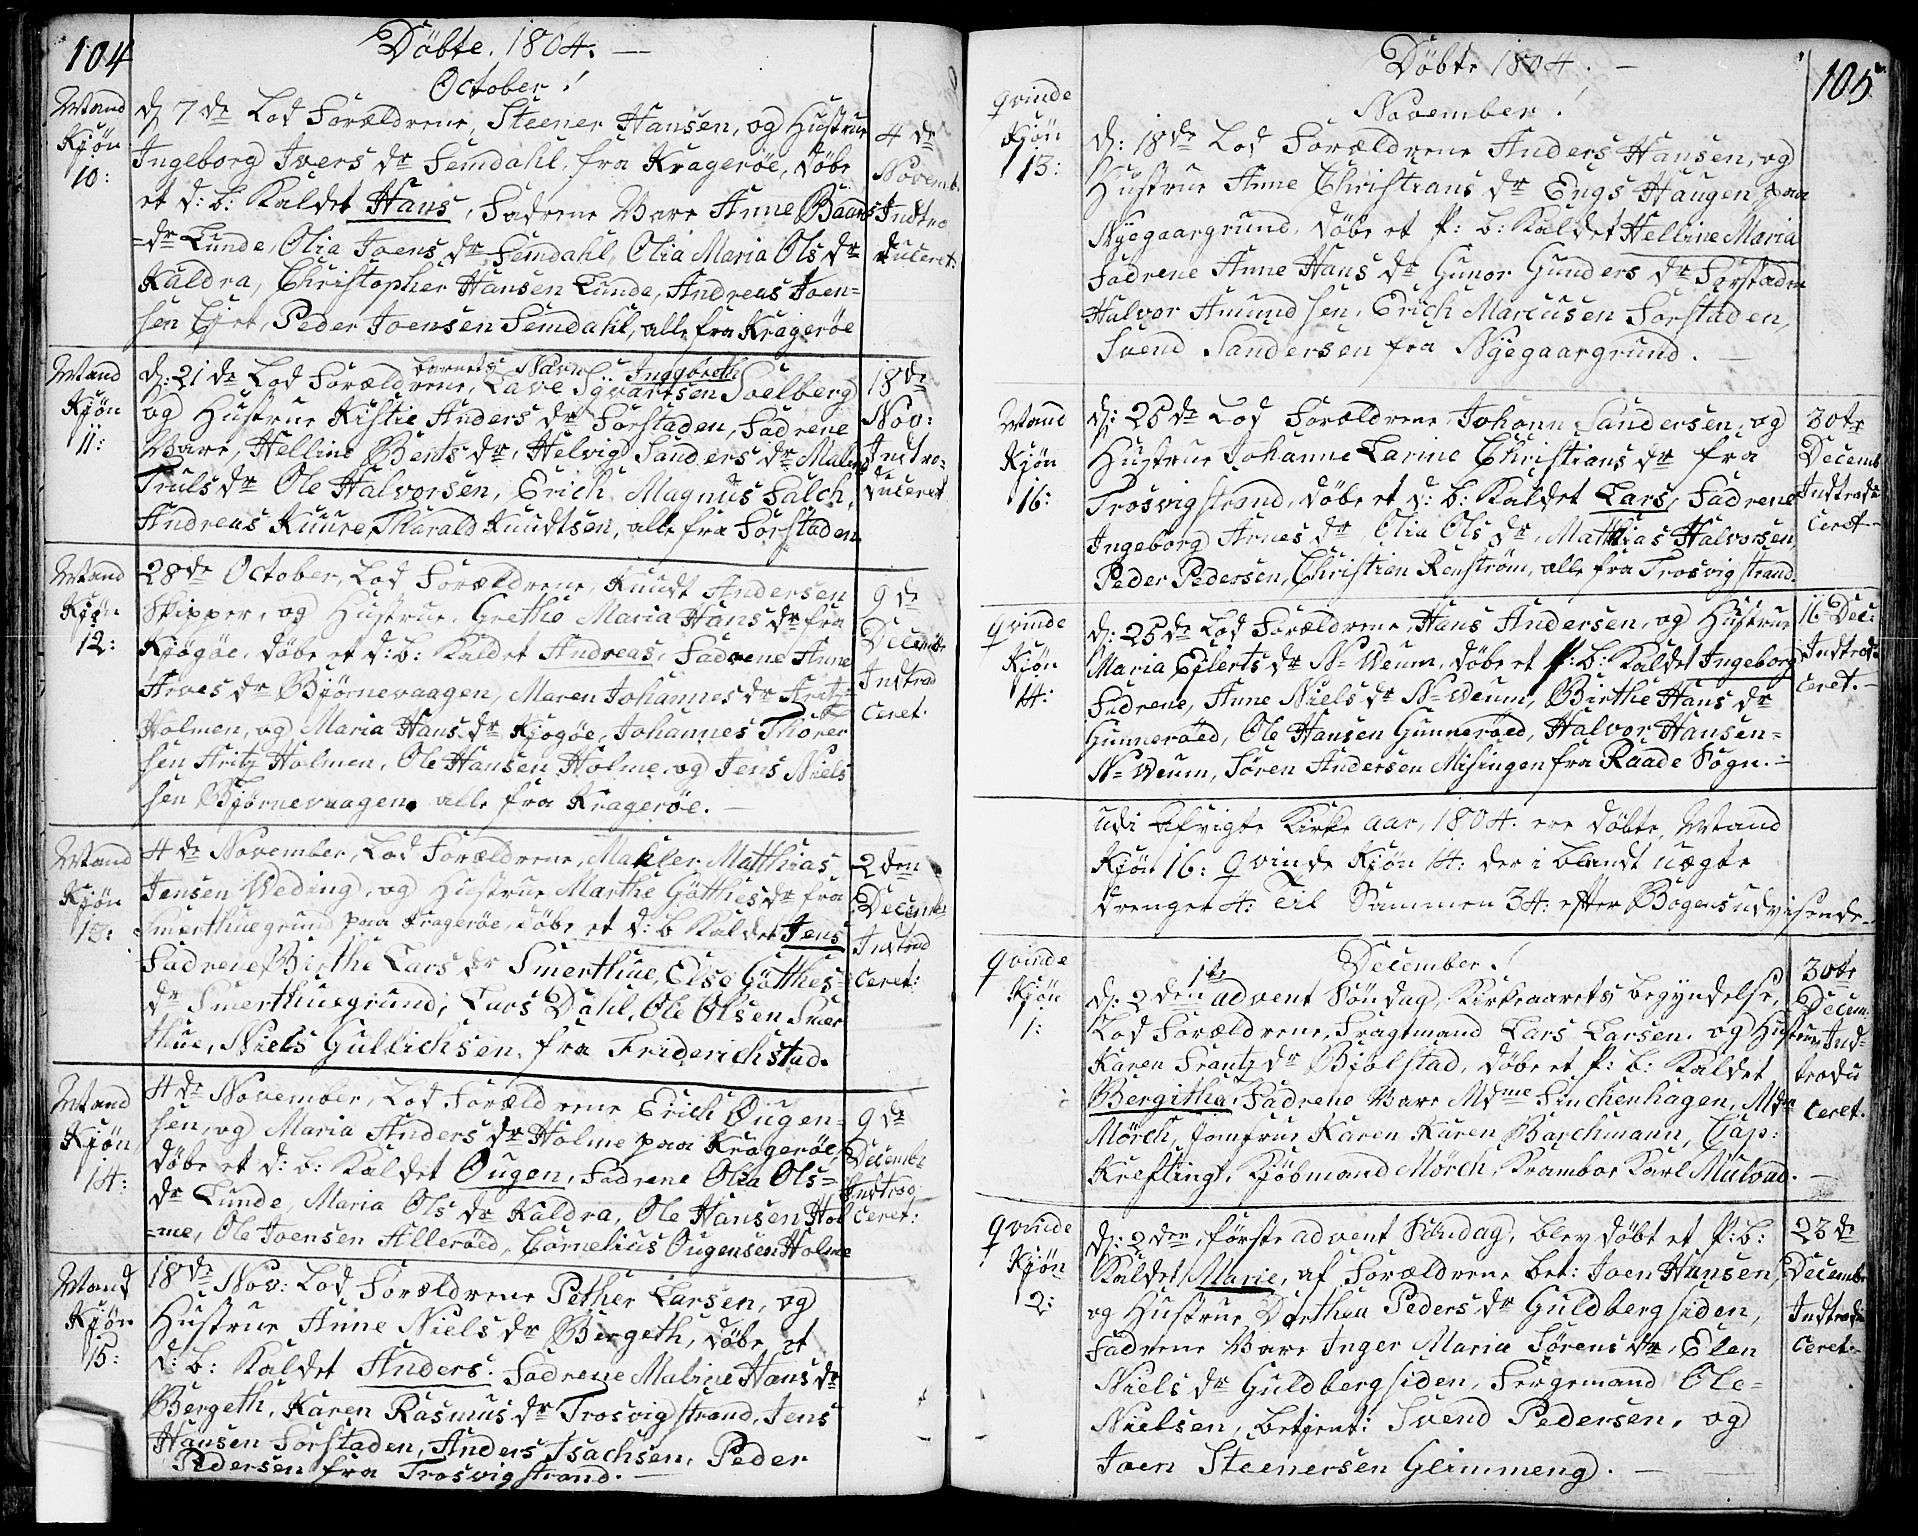 104
Döbte. 1804. —
October!
Mand
Kjön
10:
d. 7de Lod Forældrene, Steener Hansen, og Hustrue
Ingeborg Ivers dr Semdahl, fra Kragerøe, döbe
et d: b: Kaldet Hans, Fadrene Vare Anne Baars
=dr Lunde, Olia Joens dr Semdahl, Olia Maria Ols dr
Kaldra, Christopher Hansen Lunde, Andreas Joen=
sen, Peder Joensen Semdahl, alle fra Kragerøe
4de
Novemb.
Indtro
duceret:
Mand
Kjön
11:
barnets Navn Ingebreth
d: 21de Lod Forældrene, Lave Sÿvartsen Soelberg
og Hustrue Kistie Anders dr Forstaden, Fadrene
Vare, Helline Bents dr, Helvig Sanders dr, Malene
Truls dr Ole Halvorsen, Erich Magnus Falch,
Andreas Kuure, Tharald Knudtsen, alle fra Forstaden
18de
Nov:
Indtro-
duceret
Mand
Kjön
12:
28de October, Lod Forældrene, Knudt Andersen
Skipper, og Hustrue, Grethe Maria Hans dr fra
Kjøgöe, döbe et d: b: Kaldet Andreas, Fadrene Anne
Arves dr Bjørnevaagen, Maren Johannes dr Fritz
Holmen, og Maria Hans dr Kjøgöe, Johannes Thorer
sen Fritz Holmen, Ole Hansen Holme, og Jens Niels
sen Bjørnevaagen, alle fra Kragerøe. —
9de
Decemb
Indtrod
ceret:
Mand
Kjön
13:
4de November, Lod Forældrene, Mahler Matthias
Jensen Weding, og Hustrue Marthe Götthes dr fra
Smerthuegrund paa Kragerøe, döbe et d: b Kaldet Jens
Fadrene Birthe Lars dr Smerthue, Else Götthes=
dr Smerthuegrund, Lars Dahl, Ole Olsen Smer
thue, Niels Gullichsen, fra Friderichstad.
2den
Decemb
Indtrod
ceret:
Mand
Kjön
14:
4de November, Lod Forældrene Erich Ougen-
sen, og Maria Anders dr Holme paa Kragerøe,
döbe et d: b: Kaldet Ougen, Fadrene Olia Ols=
dr Lunde, Maria Ols dr Kaldra, Ole Hansen Hol
=me, Ole Joensen Allerøed, Cornelius Ougensen Holme
9de
Decembr
Indtrod
ceret:
Mand
Kjön
15:
18de Nov: Lod Forældrene Pether Larsen, og
Hustrue Anne Niels dr Bergeth, döbe et
d: b: Kaldet Anders. Fadrene Maline Hans dr
Bergeth, Karen Rasmus dr Trosvigstrand, Jens
Hansen Forstaden, Anders Isachsen, Peder
Pedersen fra Trosvigstrand. —
105
Döbte 1804. —
November!
qvinde
Kjön
13:
d: 18de Lod Forældrene Anders Hansen, og
Hustrue Anne Christians dr Engs Haugen paa
Nÿegaargrund, döbe et P: b: Kaldet Helline Maria
Fadrene Anne Hans dr Gunor Gunders dr Forstaden
Halvor Amundsen, Erich Marcusen Forstaden,
Svend Sandersen fra Nÿegaargrund. —
Mand
Kjön
16:
d: 25de Lod Forældrene, Johann Sandersen, og
Hustrue Johanne Larine Christians dr fra
Trosvigstrand, döbe et d: b: Kaldet Lars, Fadrene
Ingeborg Arnes dr, Olia Ols dr, Matthias Halvorsen,
Peder Pedersen, Christien Renström, alle fra Trosvigstrand.
30te
Decemb
Indtrodu
ceret
qvinde
Kjön
14:
d: 25de Lod Forældrene, Hans Andersen, og Hustrue
Maria Eilerts dr N= Weum, döbe et P: b: Kaldet Ingeborg
Fadrene, Anne Niels dr N= Weum, Birthe Hans dr
Gunnerøed, Ole Hansen Gunnerøed, Halvor Hansen=
N= Weum, Sören Andersen Misingen fra Raade Sogn. —
16 Dec:
Indtrod
ceret. —
udi Afvigte Kirke aar, 1804. ere döbte, Mand
Kjön 16: Qvinde Kjön 14: der i blandt uægte
drenger 4: Til Sammen 34: efter Bogens udvisende.
December!
qvinde
Kjön
1:
1te
d: 2den advent Söndag, Kirkeaarets begyndelse,
Lod Forældrene, Fragtmand Lars Larsen, og Hustrue
Karen Frantz dr Bjölstad, döbe et P: b: Kaldet
Bergitha, Fadrene Vare Mdme Finchenhagen, Mdm
Mörch, Jomfrue Karen Karen Barchmann, Cap:
Krefting, Kjöbmand Mörch, Krambor Karl Mulvad. —
30te
Decem.
Ind=
trodu
ceret.
qvinde
Kjön
2:
d: 2den, förste advent Söndag, blev döbt et P: b:
Kaldet Marie, af Forældrene bet: Joen Hansen,
og Hustrue Dorthea Peders dr Guldbergsiden,
Fadrene Vare Inger Maria Sörens dr, Elen
Niels dr Guldbergsiden, Fergemand Ole=
Nielsen, betjent: Svend Pedersen, og
Joen Steenersen Glimmeng. —
23de
Decembr
Indtrodu
ceret. —